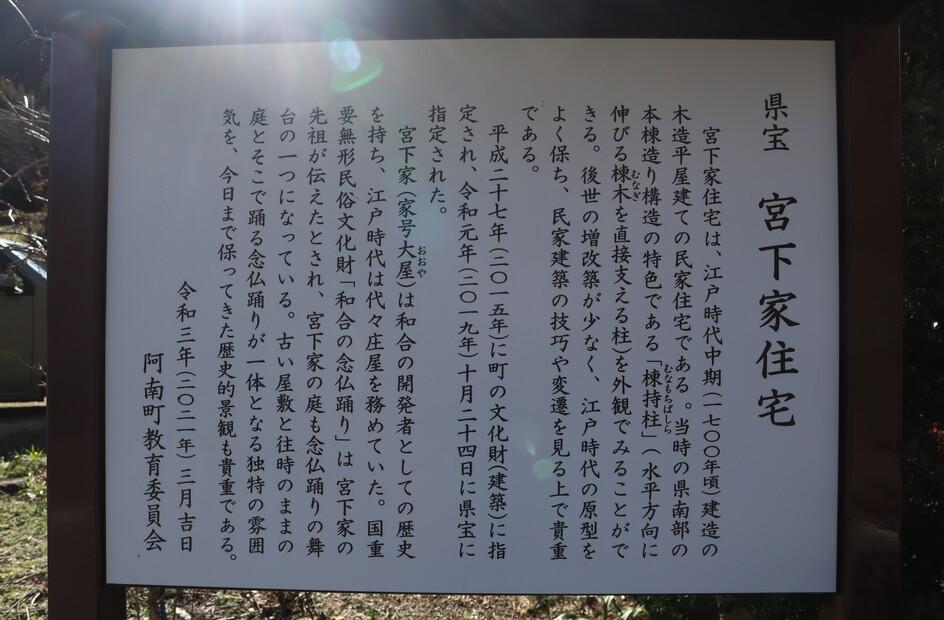 県宝 宮下家住宅
宮下家住宅は、江戸時代中期(一七〇〇年頃)建造の
木造平屋建ての民家住宅である。当時の県南部の
本棟造り構造の特色である「棟持柱」(水平方向に
むなもちばしら
伸びる棟木を直接支える柱)を外観でみることがで
むなぎ
きる。後世の増改築が少なく、江戸時代の原型を
よく保ち、民家建築の技巧や変遷を見る上で貴重
である。
平成二十七年(二〇一五年)に町の文化財(建築)に指
定され、令和元年(二〇一九年)十月二十四日に県宝に
指定された。
宮下家(家号大屋)は和合の開発者としての歴史
おおや
を持ち、江戸時代は代々庄屋を務めていた。国重
要無形民俗文化財「和合の念仏踊り」は宮下家の
先祖が伝えたとされ、宮下家の庭も念仏踊りの舞
台の一つになっている。古い屋敷と往時のままの
庭とそこで踊る念仏踊りが一体となる独特の雰囲
気を、今日まで保ってきた歴史的景観も貴重である。
令和三年(二〇二一年)三月吉日
阿南町教育委員会